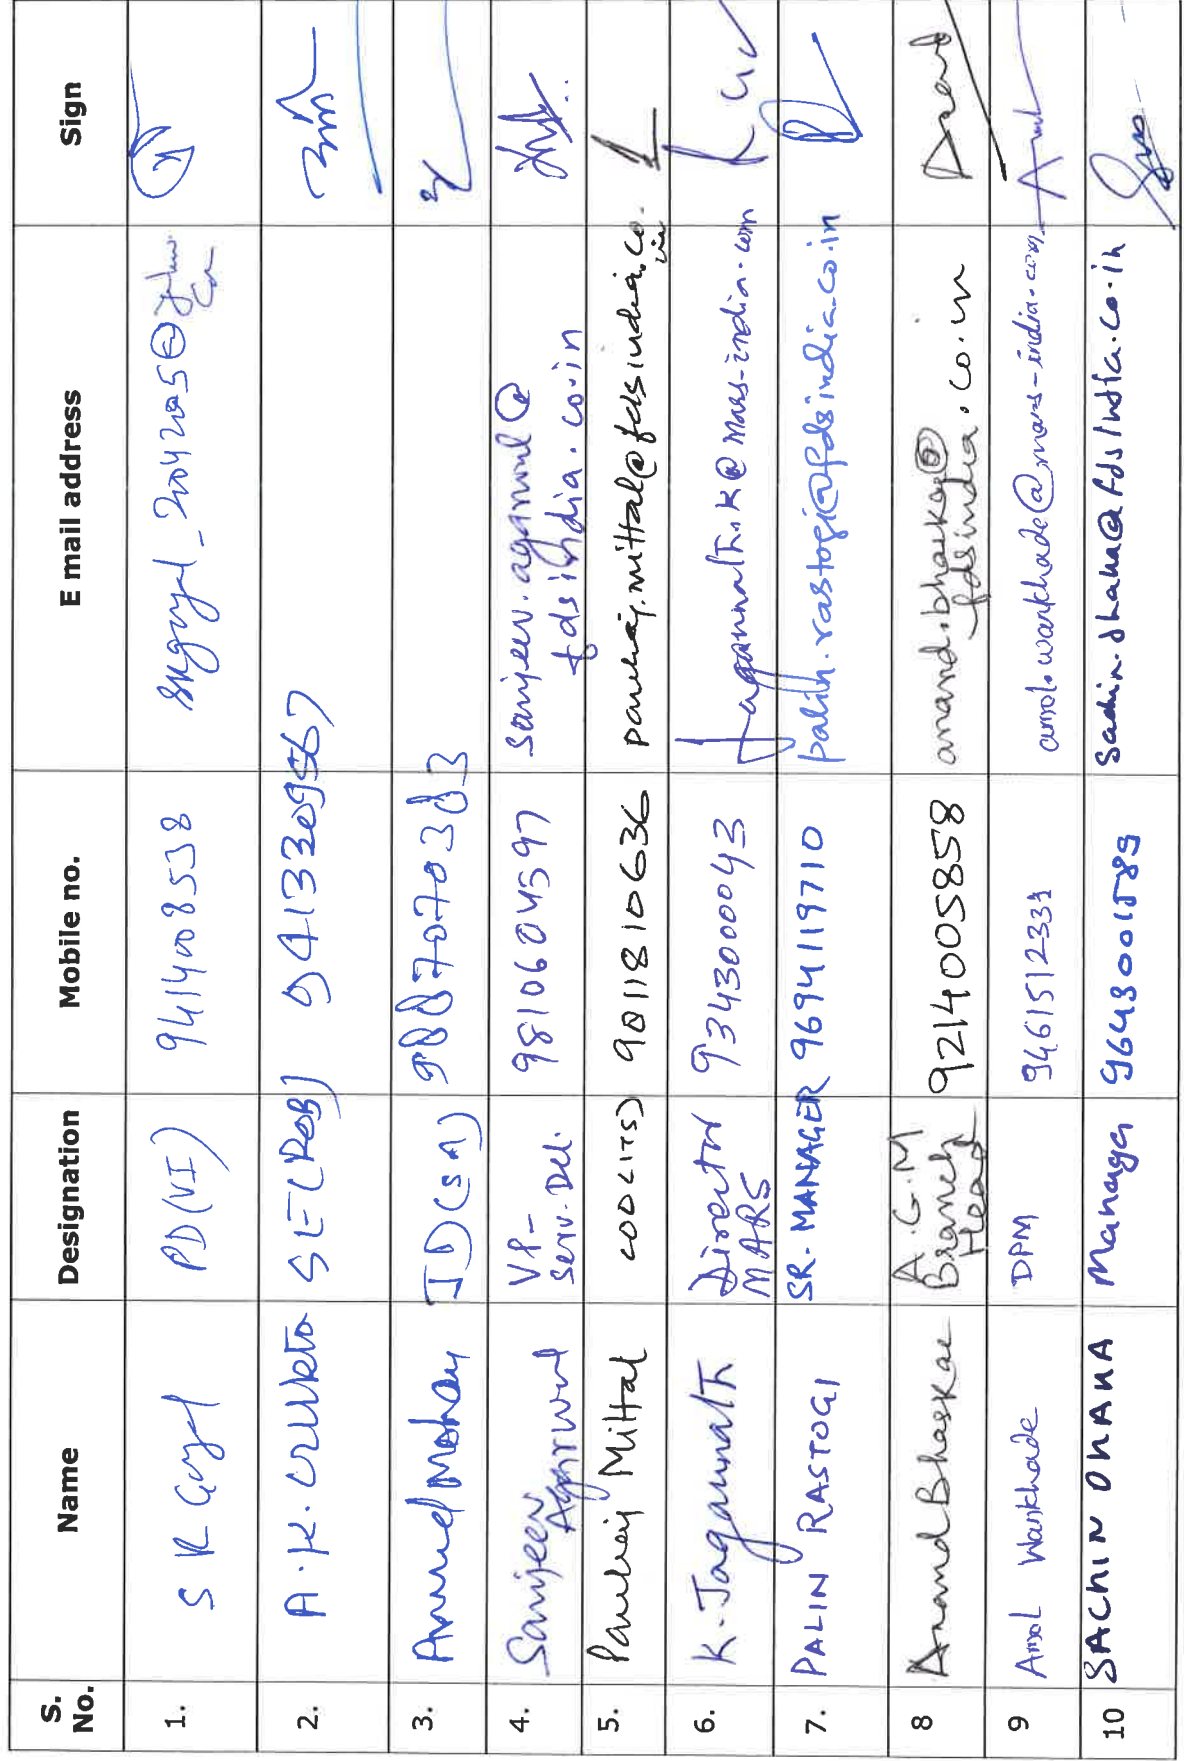 S. No. Name Designation Mobile no. E mail address Sign
1. S K Goyal PD(VI) 9414008538 skgoyal_20042005@
2. A.K. SE(ROB) 9413309567
3. Anand Mohan JD(SA) 9887070383
4. Sanjeev Agarwal VP- Serv. Del. 9810604597 Sanjeev.agarwal@ fdsindia.co.in
5. Pankaj Mittal COO(ITS) 9811810636 pankaj.mittal@fdsindia.co.in
6. K. Jagannath Director MARS 9343000043 jagannath.k@mars-india.com
7. PALIN RASTOGI SR. MANAGER 9694119710 palin.rastogi@fdsindia.co.in
8 Anand Bhaskar A.G.M Branch Head 9214005858 anand.bhaskar@ fdsindia.co.in
9 Amol Wankhade DPM 9461512334 amol.wankhade@mars-india.com
10 SACHIN DHANA Manager 9643001589 Sachin.dhana@fdsindia.co.in